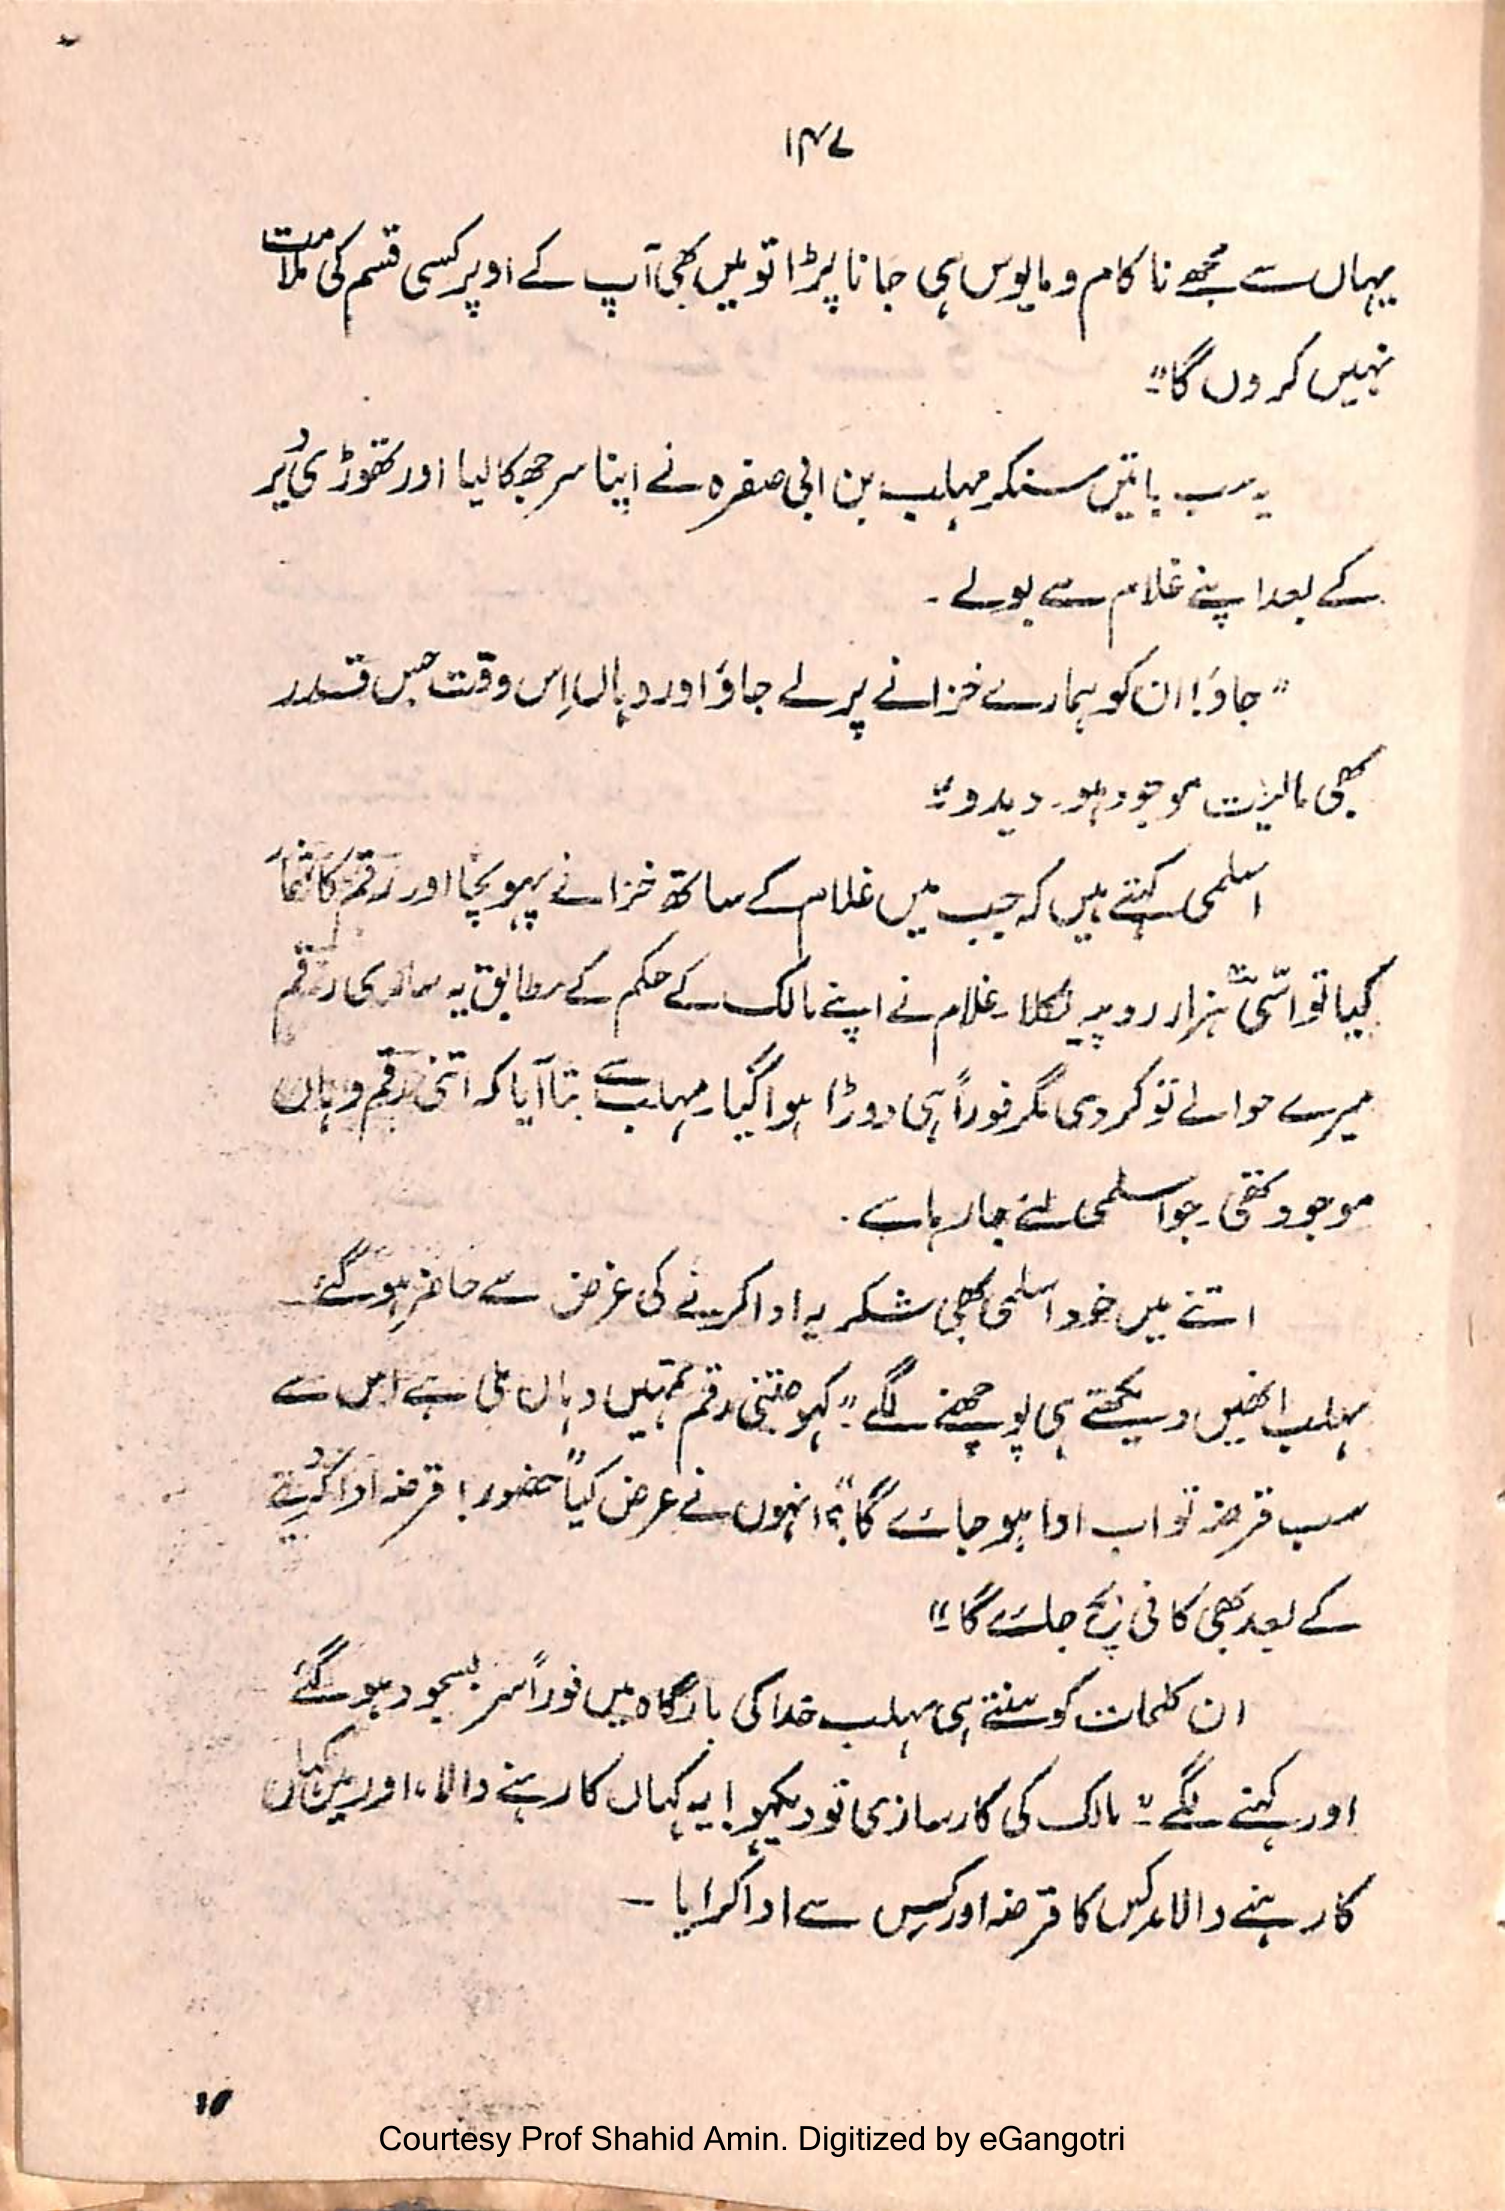 ۱۴۷
یہاں سے مجھے ناکام و مایوس ہی جانا پڑا تو میں بھی آپ کے اوپر کسی قسم کی ملامت
نہیں کروں گا"۔
یہ سب باتیں سنکر مہلب بن ابی صفرہ نے اپنا سر جھکا لیا اور تھوڑی دیر
کے بعد اپنے غلام سے بولے ۔
"جاؤ! ان کو ہمارے خزانے پر لے جاؤ اور وہاں اِس وقت جس قدر
بھی مالیت موجود ہو۔ دیدو"۔
اسلمی کہتے ہیں کہ جب میں غلام کے ساتھ خزانے پہونچا اور رقم کا شمار
کیا تو اسّی ہزار روپیہ نکلا۔ غلام نے اپنے مالک کے حکم کے مطابق یہ ساری رقم
میرے حوالے تو کردی مگر فوراً ہی دوڑا ہوا گیا۔ مہلب سے بتا آیا کہ اتنی رقم وہاں
موجود تھی۔ جو اسلمی لئے جا رہا ہے۔
اتنے میں خود اسلمی بھی شکریہ ادا کرنے کی غرض سے حاضر ہو گئے۔
مہلب انھیں دیکھتے ہی پوچھنے لگے"۔ کہو جتنی رقم تمہیں وہاں ملی ہے اس سے
سب قرضہ تو اب ادا ہو جائے گا"؟ انہوں نے عرض کیا "حضور! قرضہ ادا کر دینے
کے بعد بھی کافی بچ جائے گا"۔
ان کلمات کو سنتے ہی مہلب خدا کی بارگاہ میں فوراً سر بسجود ہو گئے
اور کہنے لگے"۔ مالک کی کارسازی تو دیکھو! یہ کہاں کا رہنے والا، اور میں کہاں
کا رہنے والا۔ کس کا قرضہ اور کس سے ادا کرایا —
۱۵
Courtesy Prof Shahid Amin. Digitized by eGangotri